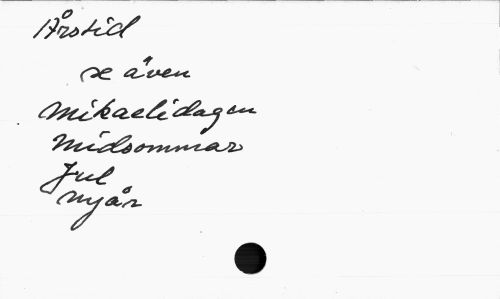 Årstid
se även
Mikaelidagen
Midsommar
Jul
nyår